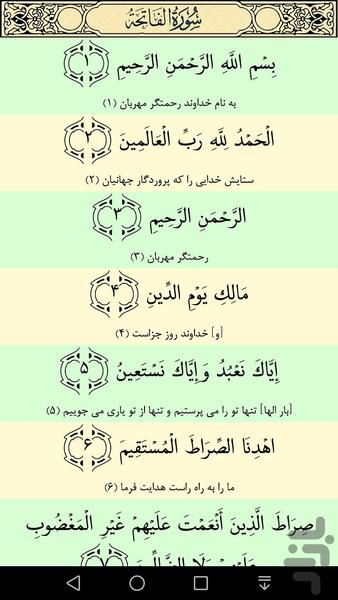 سُورَةُ الْفَاتِحَةِ
بِسْمِ اللَّهِ الرَّحْمَنِ الرَّحِيمِ ۱
به نام خداوند رحمتگر مهربان (۱)
الْحَمْدُ لِلَّهِ رَبِّ الْعَالَمِينَ ۲
ستایش خدایی را که پروردگار جهانیان (۲)
الرَّحْمَنِ الرَّحِيمِ ۳
رحمتگر مهربان (۳)
مَالِكِ يَوْمِ الدِّينِ ۴
[و] خداوند روز جزاست (۴)
إِيَّاكَ نَعْبُدُ وَإِيَّاكَ نَسْتَعِينُ ۵
[بار الها] تنها تو را می پرستیم و تنها از تو یاری می جوییم (۵)
اهْدِنَا الصِّرَاطَ الْمُسْتَقِيمَ ۶
ما را به راه راست هدایت فرما (۶)
صِرَاطَ الَّذِينَ أَنْعَمْتَ عَلَيْهِمْ غَيْرِ الْمَغْضُوبِ
بازار